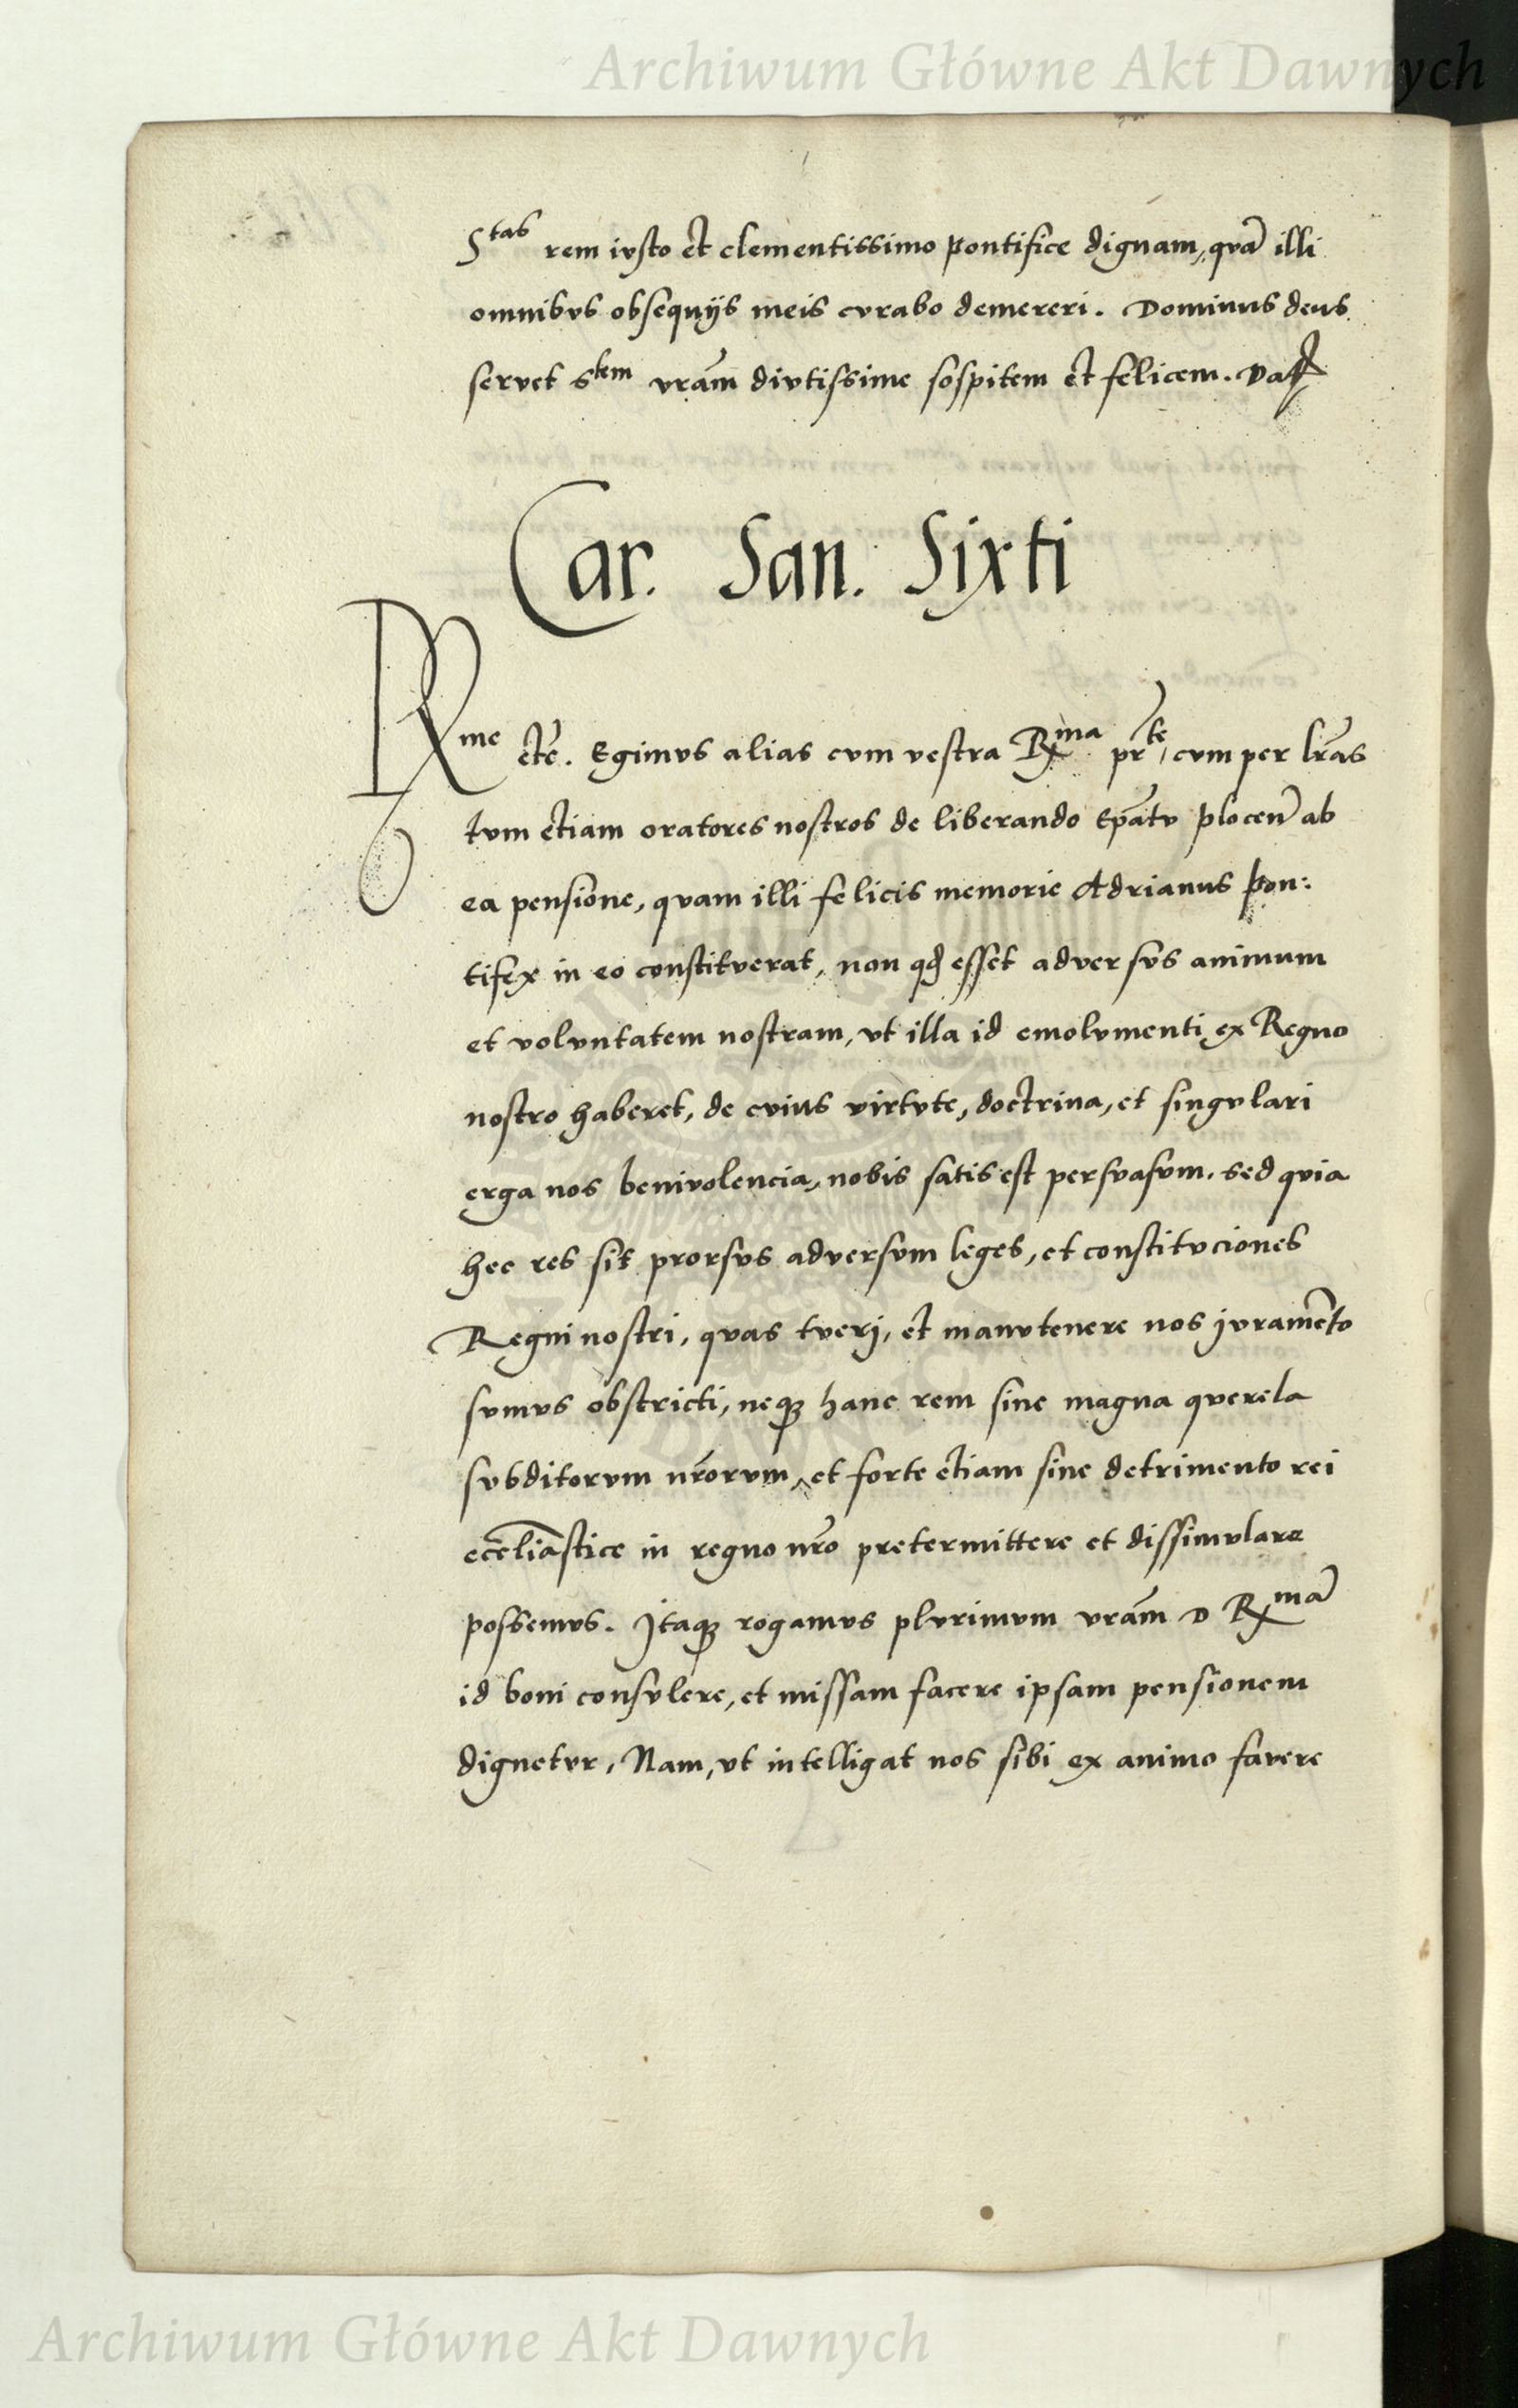 Archiwum Główne Akt Dawnych
Stas rem iusto et clementissimo pontifice dignam, quā illi
omnibus obsequijs meis curabo demereri. Dominus deus
servet Stem vrām diutissime sospitem et felicem. Dat
Car. San. Sixti
Rme etc̄. Egimus alias cum vestra Rma pr̄te, cum per lr̄as
tum etiam oratores nostros de liberando Ep̄atu plocen̄ ab
ea pensione, quam illi felicis memorie Adrianus pon:
tifex in eo constituerat, non qd esset adversus animum
et voluntatem nostram, ut illa id emolumenti ex Regno
nostro haberet, de cuius virtute, doctrina, et singulari
erga nos benivolencia, nobis satis est persuasum. Sed quia
hec res sit prorsus adversum leges, et constituciones
Regni nostri, quas tueri, et manutenere nos juramēto
sumus obstricti, neqꝫ hanc rem sine magna querela
subditorum nr̄orum, et forte etiam sine detrimento rei
ecc̄liastice in regno nr̄o pretermittere et dissimulare
possemus. Itaqꝫ rogamus plurimum vrām D Rmā
id boni consulere, et missam facere ipsam pensionem
dignetur, Nam, ut intelligat nos sibi ex animo favere
Archiwum Główne Akt Dawnych